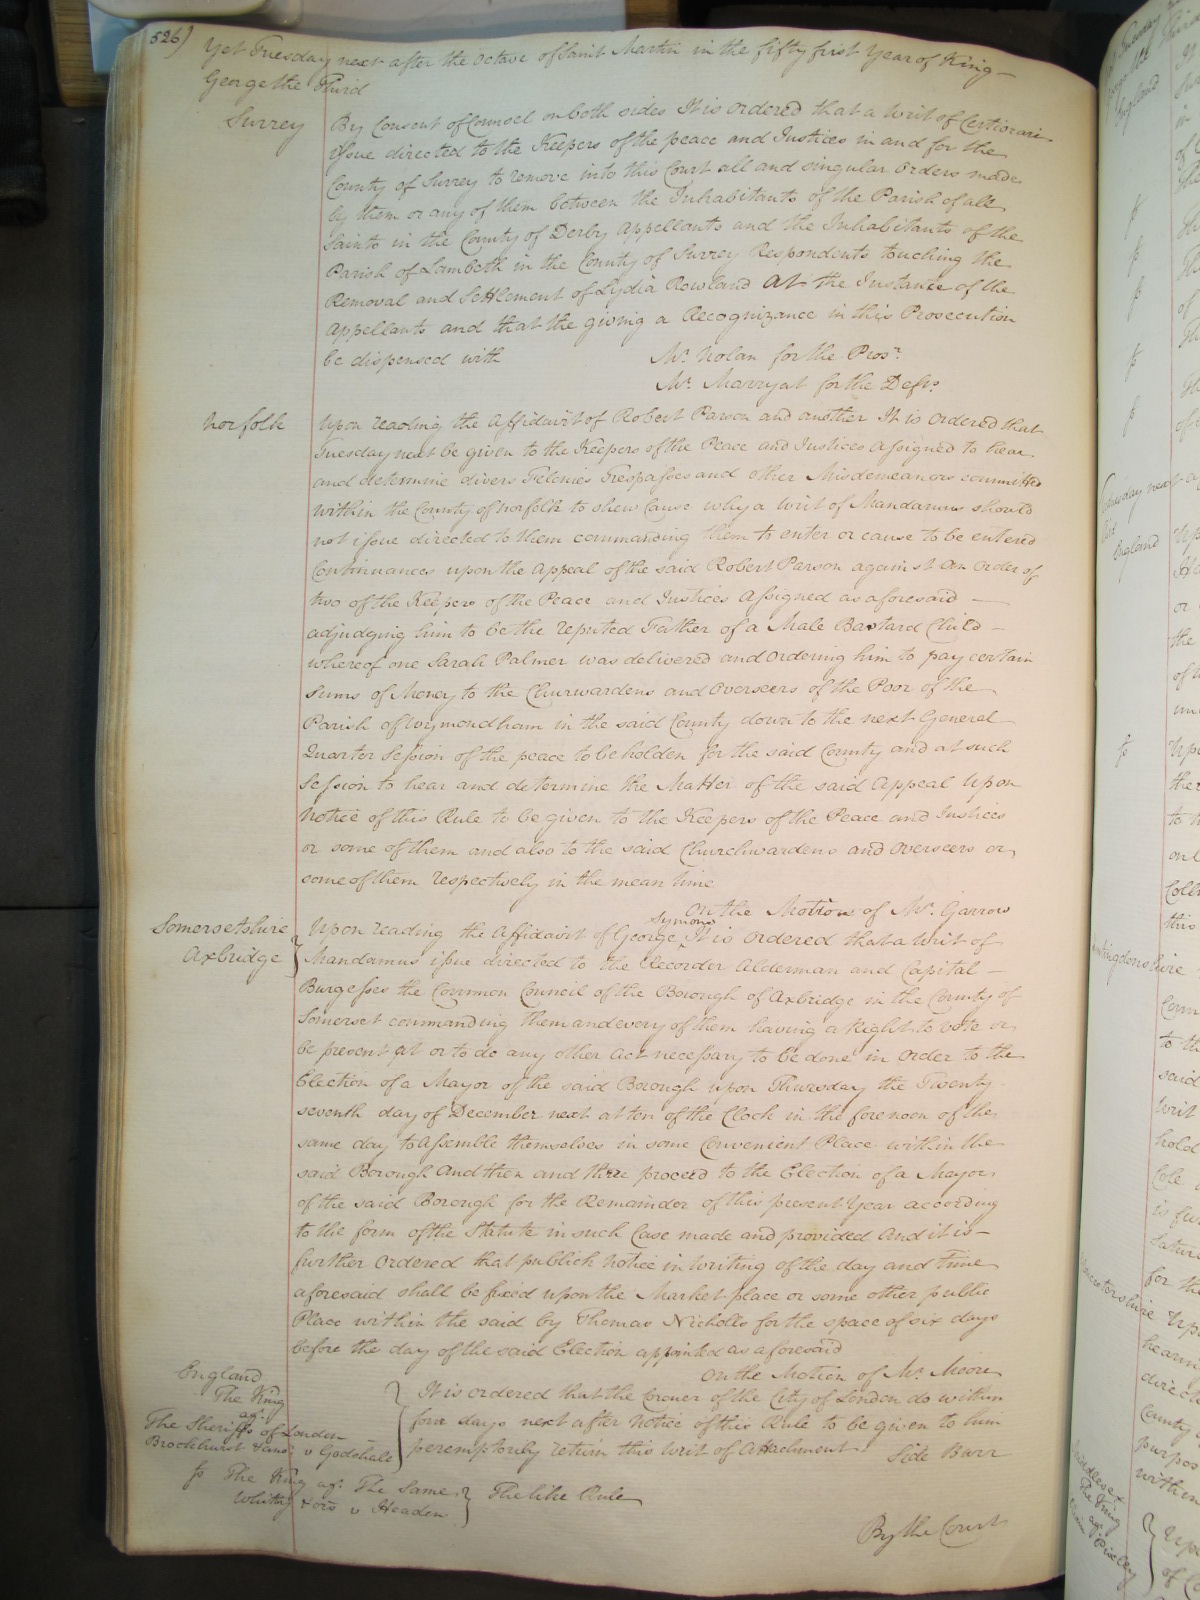 526)
Yet Tuesday next after the Octave of Saint Martin in the fifty first Year of King
George the Third
Surrey
By Consent of Counsel on both sides It is ordered that a Writ of Certiorari
issue directed to the Keepers of the peace and Justices in and for the
County of Surrey to remove into this Court all and singular Orders made
by them or any of them between the Inhabitants of the Parish of all
Saints in the County of Derby Appellants and the Inhabitants of the
Parish of Lambeth in the County of Surrey Respondents touching the
Removal and Settlement of Lydia Rowland At the Instance of the
Appellants and that the giving a Recognizance in this Prosecution
be dispensed with
Mr. Nolan for the Prosr.
Mr. Marryat for the Defts.
Norfolk
Upon reading the Affidavit of Robert Parson and another It is Ordered that
Tuesday next be given to the Keepers of the Peace and Justices assigned to hear
and determine divers Felonies Trespasses and other Misdemeanors committed
within the County of Norfolk to shew Cause why a Writ of Mandamus should
not issue directed to them commanding them to enter or cause to be entered
Continuances upon the Appeal of the said Robert Parson against an Order of
two of the Keepers of the Peace and Justices Assigned as aforesaid
adjudging him to be the reputed Father of a Male Bastard Child
whereof one Sarah Palmer was delivered and Ordering him to pay certain
sums of Money to the Churwardens and Overseers of the Poor of the
Parish of Wymondham in the said County down to the next General
Quarter Session of the peace to be holden for the said County and at such
Session to hear and determine the Matter of the said Appeal Upon
Notice of this Rule to be given to the Keepers of the Peace and Justices
or some of them and also to the said Churchwardens and Overseers or
some of them respectively in the mean time
On the Motion of Mr. Garrow
Somersetshire
Axbridge
Upon reading the Affidavit of George Symons It is Ordered that a Writ of
Mandamus issue directed to the Recorder Alderman and Capital
Burgesses the Common Council of the Borough of Axbridge in the County of
Somerset commanding them and every of them having a Right to Vote or
be present at or to do any other Act necessary to be done in Order to the
Election of a Mayor of the said Borough upon Thursday the Twenty
seventh day of December next at ten of the Clock in the forenoon of the
same day to Assemble themselves in some Convenient Place within the
said Borough And then and there proceed to the Election of a Mayor
of the said Borough for the Remainder of this present Year according
to the form of the Statute in such Case made and provided And it is
further Ordered that publick Notice in Writing of the day and Time
aforesaid shall be fixed upon the Market place or some other public
Place within the said by Thomas Nicholls for the space of six days
before the day of the said Election appointed as aforesaid
On the Motion of Mr. Moore
England
The King
agt.
The Sheriffs of London
Brockhurst & anr. v Godshale
It is ordered that the Coroner of the City of London do within
four days next after Notice of this Rule to be given to him
peremptorily return this Writ of Attachment
Side Barr
The King agt. The Same
v Headen
The like Rule
By the Court